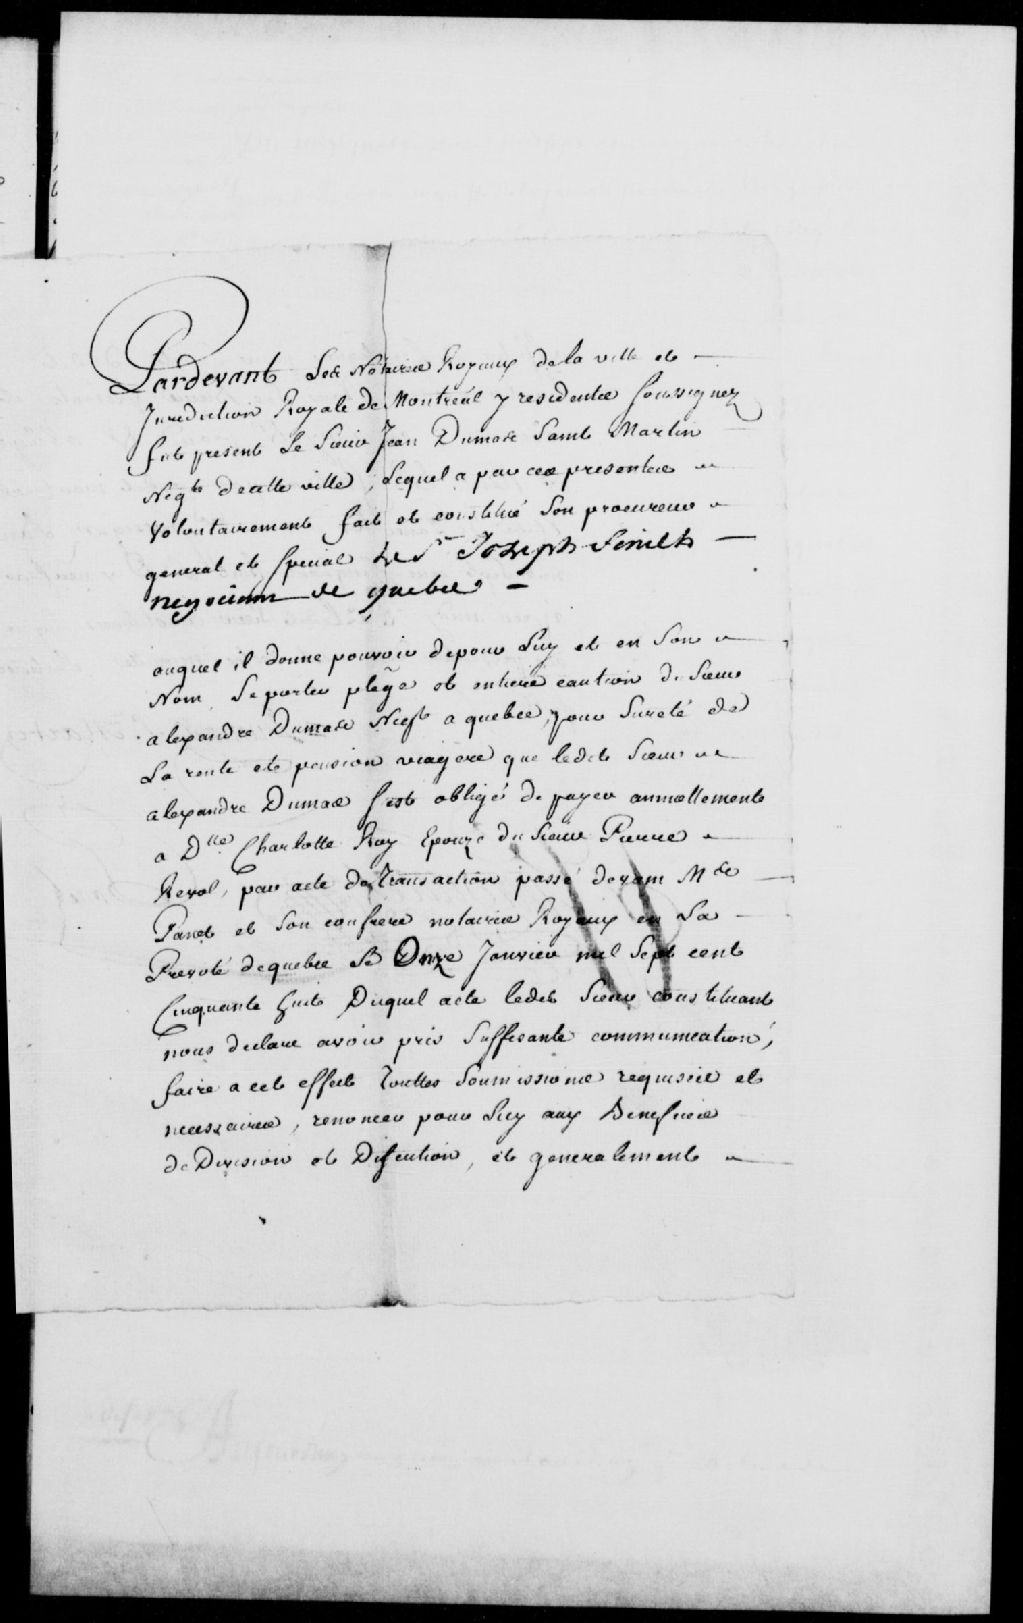 Pardevant Les Notaires Royaux de la ville et
Jurediction Royale de Montreal y residents soussignez
fut present le Sieur Jean Dumas Saint Martin
Negt. de cette ville, Lequel a par ces presentes
Volontairement fait et constitué son procureur
general et special le Sr Joseph
negociant de quebec
auquel il donne pouvoir de pour luy et en son
Nom Se porter plege et entiere caution du Sieur
alexandre Dumas Negt a quebec, pour sureté de
La rente et pension viagere que ledit Sieur
alexandre Dumas s'est obligé de payer annuellement
a Dlle Charlotte Roy Epouze du Sieur Pierre
Revol, par acte de Transaction passé devant Me
Panet et son confrere notaires Royaux en La
Prevoté de quebec le Onze Janvier mil Sept cent
Cinquante huit Duquel acte ledit Sieur constituant
nous declare avoir pris suffisante communication,
faire a cet effet touttes soumissions requises et
necessaires, renoncer pour luy aux Benefices
de Division et Discution, et generalement